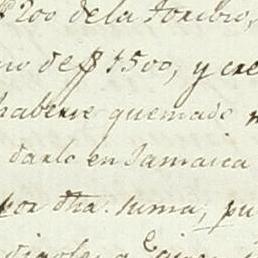 $200 de la Toribio,
no de $1500, y cre
haberse quemado
darlo en Jamaica
por dha. suma, pu